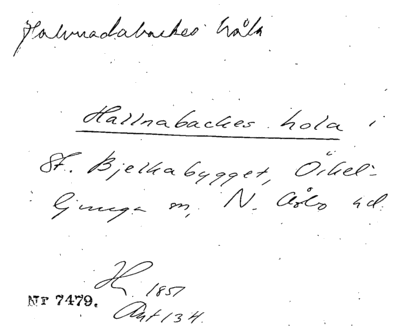 Halmadabackes håla
Hallnabackes hola i
St. Bjelkabygget, Örkel-
ljunga sn, N. Åsbo hd
H 1851
Nr 7479.
Ant 134.